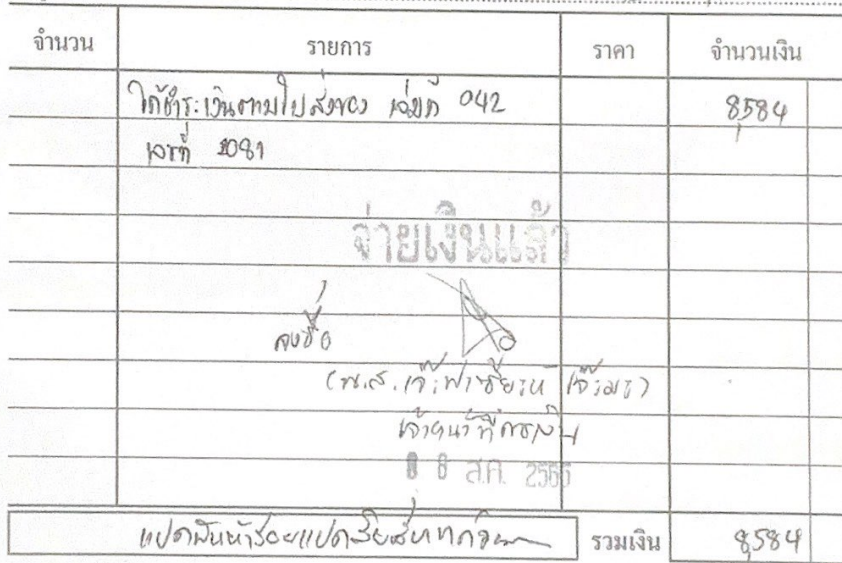 จำนวน รายการ ราคา จำนวนเงิน
ได้ชำระเงินตามใบส่งของ เล่มที่ 042 8,584
เลขที่ 2081
จ่ายเงินแล้ว
ลงชื่อ
เจ้าหน้าที่การเงิน
8 ส.ค. 2555
แปดพันห้าร้อยแปดสิบสี่บาทถ้วน รวมเงิน 8,584